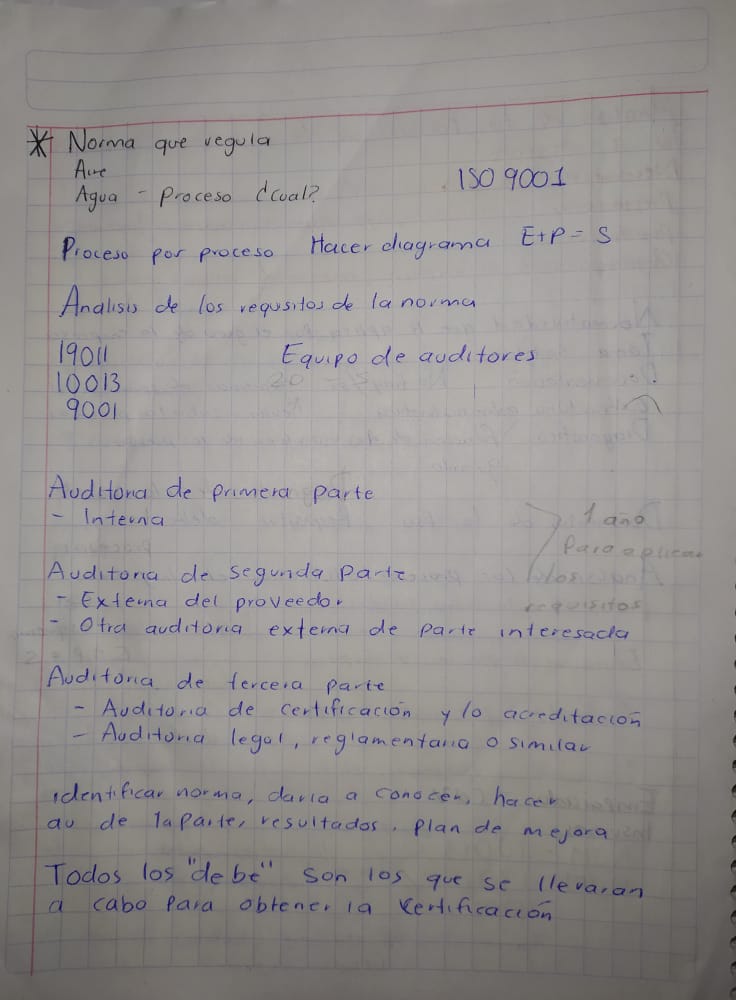 * Norma que regula
Aire
Agua - Proceso ¿cual?
ISO 9001
Proceso por proceso Hacer diagrama E+P = S
Analisis de los requsitos de la norma
19011 Equipo de auditores
10013
9001
Auditoria de primera parte
- Interna
Auditoria de segunda parte
- Externa del proveedor
- Otra auditoria externa de parte interesada
1 año
Para aplicar
requisitos
Auditoria de tercera parte
- Auditoria de certificación y/o acreditación
- Auditoria legal, reglamentaria o similar
identificar norma, darla a conocer, hacer
au de 1a parte, resultados, plan de mejora
Todos los "debe" son los que se llevaran
a cabo para obtener la certificación